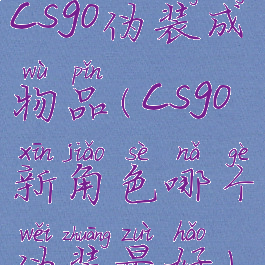 csgo伪装成
wù pǐn
物品(csgo
xīn jiǎo sè nǎ gè
新角色哪个
wěi zhuāng zuì hǎo
伪装最好)